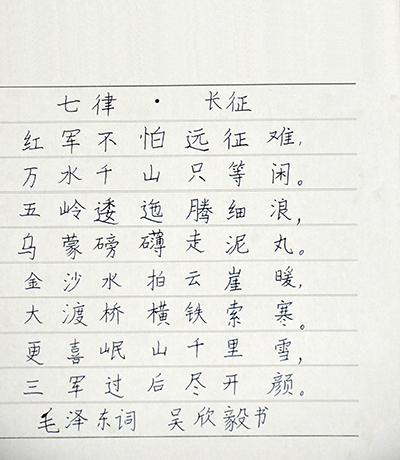 七律·长征
红军不怕远征难,
万水千山只等闲。
五岭逶迤腾细浪,
乌蒙磅礴走泥丸。
金沙水拍云崖暖,
大渡桥横铁索寒。
更喜岷山千里雪,
三军过后尽开颜。
毛泽东词 吴欣毅书